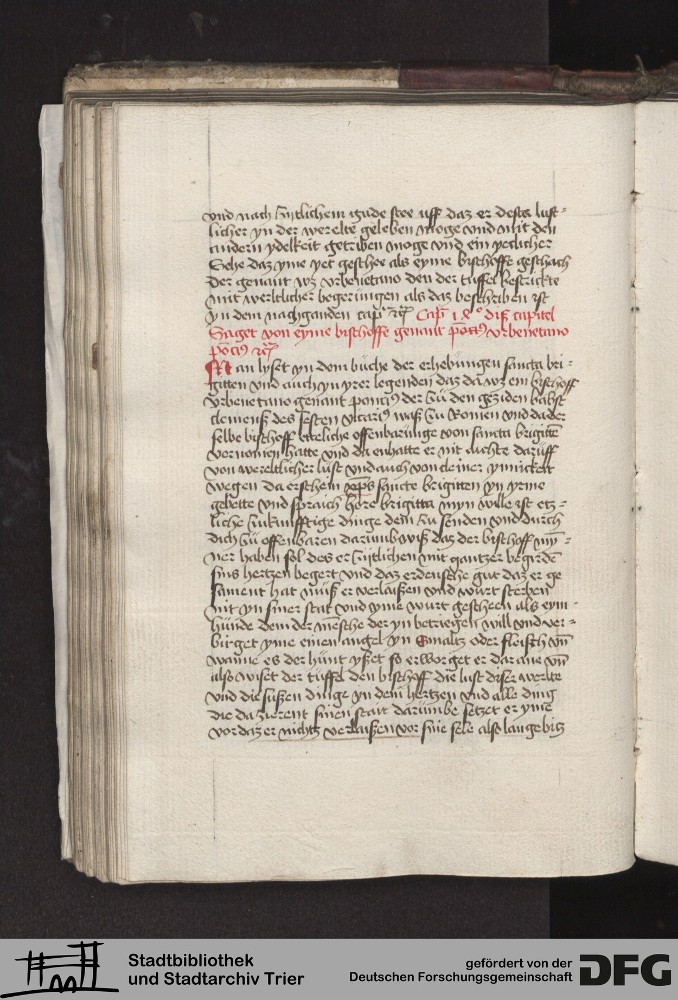 vnd nach zijtlichem gude stee uff daz er deste lust=
licher yn der werelte geleben moge vnd mit den
andern ydelkeit getriben moge vnd ein yeclicher
Sehe daz yme yet geschee als eyme bischoffe geschach
der genant wz vrbenetano den der tuffel bestrickte
mit werltlicher begerungen als daz beschriben ist
yn dem nachganden cap̄ ⁊c̄ Cap̄ 18° diß capitel
Saget von eyme bischoffe genant vrbenetano
⁊c̄
Man lyset yn dom buche der erhebungen sancta bri=
gitten vnd auch yn yrer legenden daz da wz ein bischoff
vrbenetano genant poncius der zu den geziden babst
clemenß des sesten vicarius waß zu Romen vnd da der
selbe bischoff etteliche offenbarunge von sancta brigittē
vernomen hatte vnd da enhatte er nit duchte daruff
von wereltlicher lust vnd auch von cleiner ynnickeit
wegen da erschein xp̄s sancte brigitten yn yrme
gebette vnd spraich hore brigitta myn wille ist etz=
liche zukunfftige dinge dem zu senden vnd durch
dich zu offenbaren darumb wiß daz der bischoff myn=
ner haben sol des er zijtlichen mit gantzer begirde
sins hertzen begert vnd daz erdensche gut daz er ge
sament hat muß er verlaißen vnd wurt sterben
nit yn siner stat vnd yme wurt gescheen als eym=
hunde dem der mēsche der yn betriegen will vnd ver=
birget yme einen angel yn Smaltz oder fleisch vn̄
wanne es der hunt yßet so erworget er dar ane vn̄
also wiset der tuffel den bischoff die lust diser werlte
vnd die sußen dinge yn dem hertzen vnd alle ding
die da zierent sinen stait darumbe setzet er yme
vor daz er nichtz verlaißen vor sine sele also lange biz
Stadtbibliothek
und Stadtarchiv Trier
gefördert von der
Deutschen Forschungsgemeinschaft
DFG